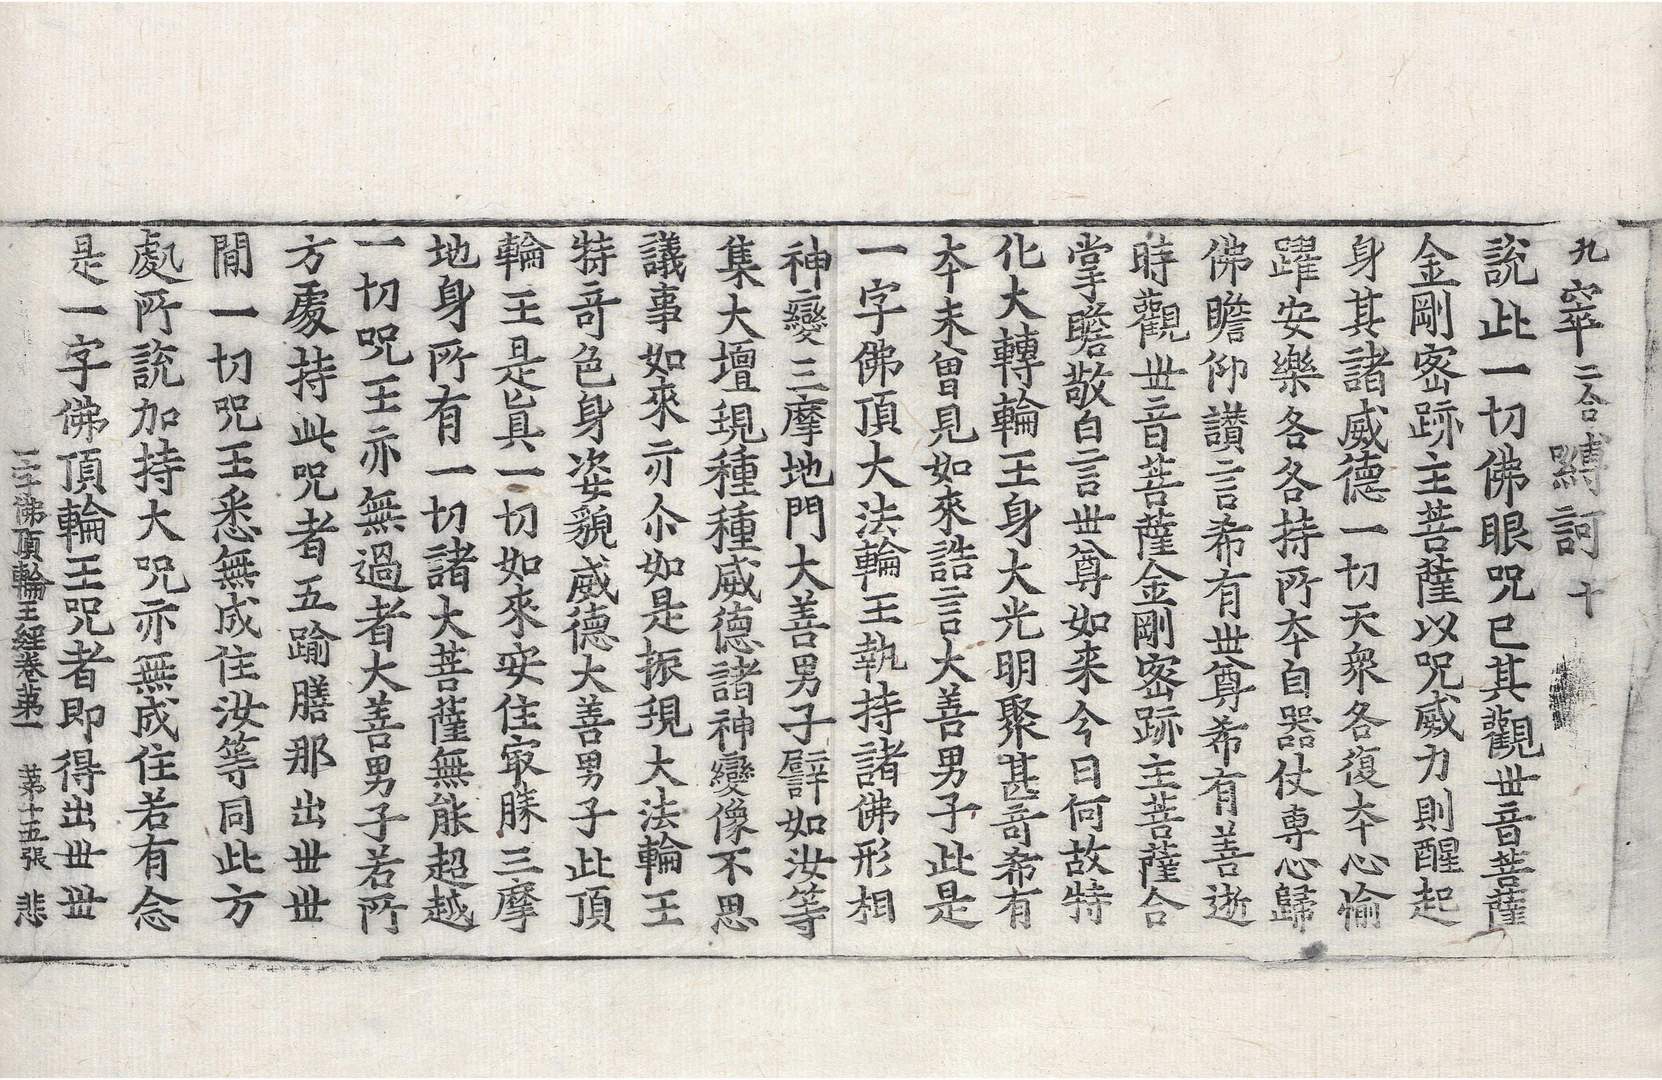 九窣二合縛訶十
說此一切佛眼呪已其觀世音菩薩
金剛密跡主菩薩以呪威力則醒起
身其諸威德一切天衆各復夲心愉
躍安樂各各持所夲自器仗専心歸
佛瞻仰讃言希有世尊希有善逝
時觀世音菩薩金剛密跡主菩薩合
掌瞻敬白言世尊如来今日何故特
化大轉輪王身大光明聚甚竒希有
夲未曾見如來誥言大善男子此是
一字佛頂大法輪王執持諸佛形相
神變三摩地門大善男子譬如汝等
集大壇現種種威德諸神變像不思
議事如來亦尒如是振現大法輪王
特竒色身姿貌威德大善男子此頂
輪王是真一切如來安住㝡勝三摩
地身所有一切諸大菩薩無能超越
一切呪王亦無過者大善男子若所
方處持此呪者五踰膳那出世世
閒一切呪王悉無成住汝等同此方
處所說加持大呪亦無成住若有念
是一字佛頂輪王呪者即得出世世
一字佛頂輪王經卷苐一　苐十五張　悲